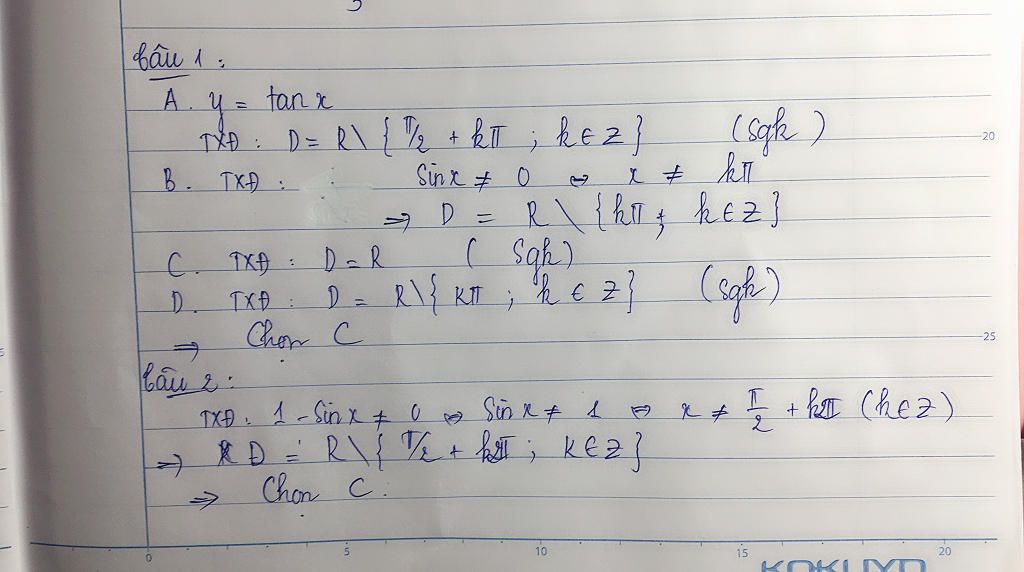 Câu 1 :
A. y = tan x
TXĐ : D = R \ { π/2 + kπ ; k ∈ Z } (sgk)
B. TXĐ : Sin x ≠ 0 ⇔ x ≠ kπ
⇒ D = R \ { kπ ; k ∈ Z }
C. TXĐ : D = R ( Sgk)
D. TXĐ : D = R \ { kπ ; k ∈ Z } (sgk)
⇒ Chọn C
Câu 2 :
TXĐ : 1 - Sin x ≠ 0 ⇔ Sin x ≠ 1 ⇔ x ≠ π/2 + k2π (k ∈ Z)
⇒ D = R \ { π/2 + k2π ; k ∈ Z }
⇒ Chọn C.
20
25
0 5 10 15 20
KOKUYO